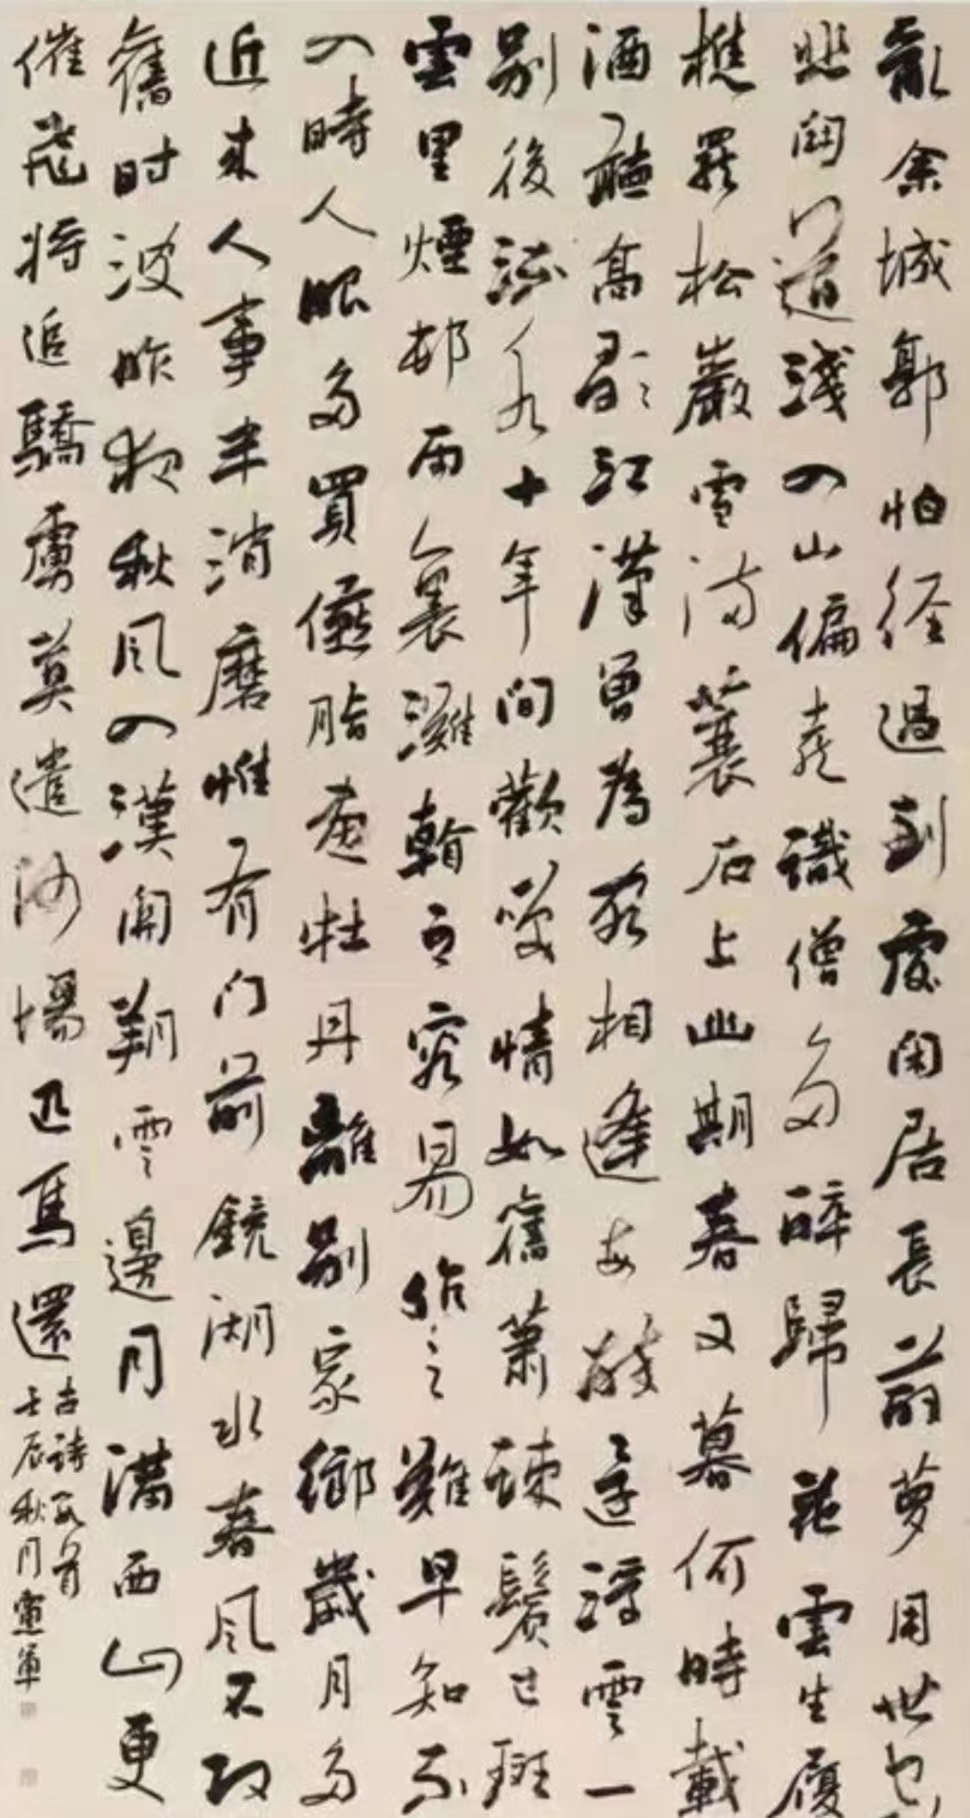 亂余城郭怕經過到處閑居長薜蘿用世
悲聞道淺入山偏喜識僧多醉歸花雲生履
樵罷松巖雪滿蓑石上幽期春又暮何時載
酒聽高歌江漢曾為客相逢每醉還浮雲一
別後流水十年間歡笑情如舊蕭疎鬢已斑
雲里煙邨雨裏灘之容易作之難早知不
入時人眼多買臙脂畫牡丹離別家鄉歲月多
近來人事半消磨惟有門前鏡湖水春風不改
舊時波昨夜秋風入漢關朔雲邊月滿西山更
催飛將追驕虜莫遣沙場匹馬還
古詩數首
壬辰秋月憲軍